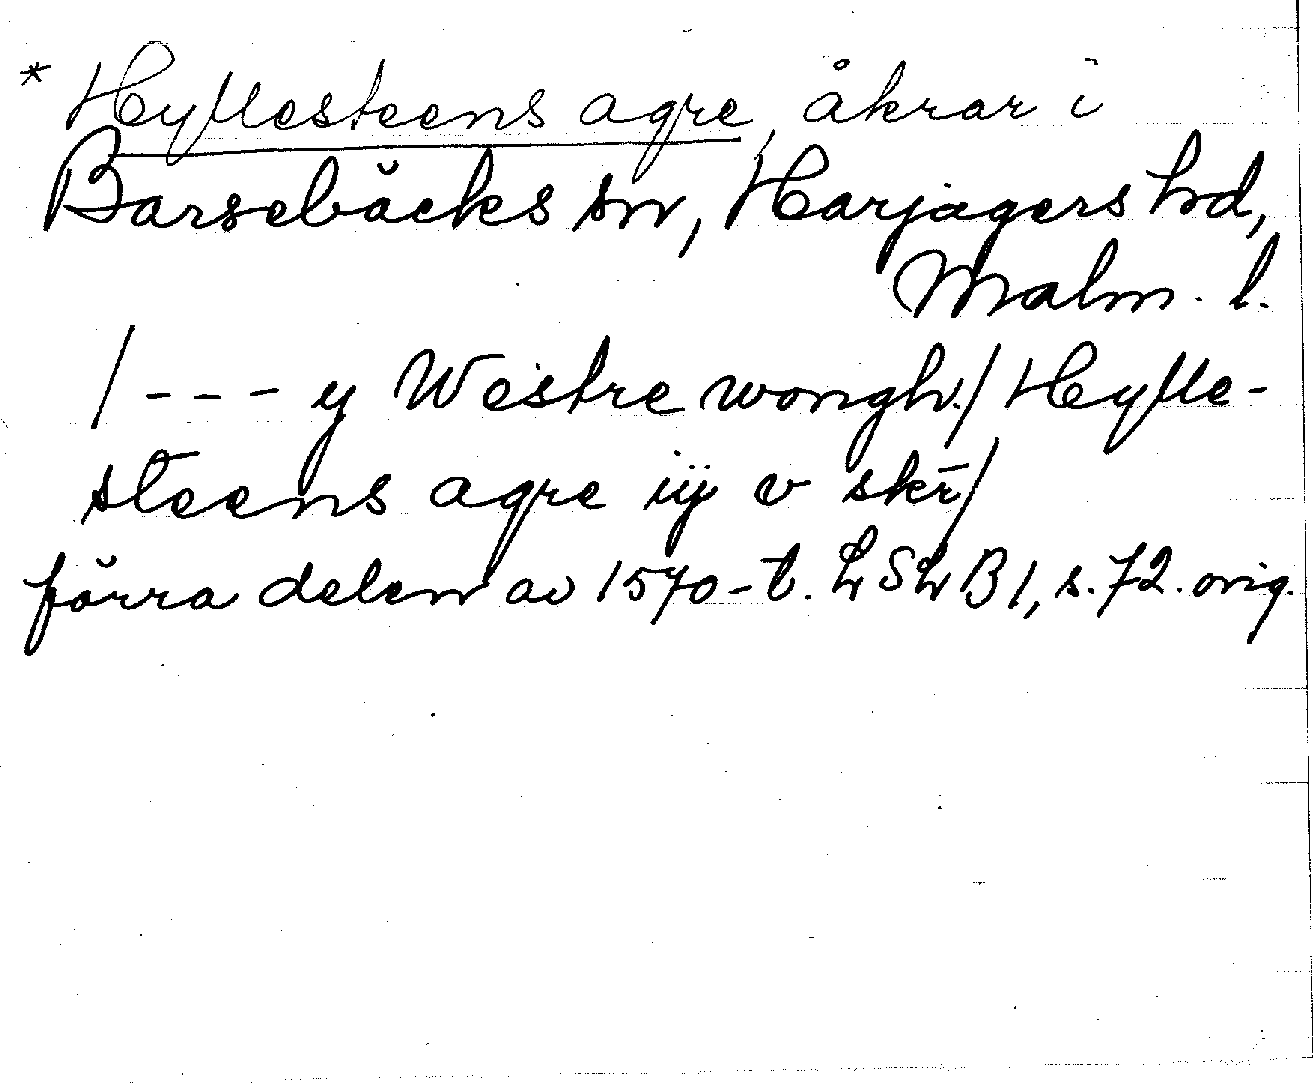 * Hyllesteens agre, åkrar i
Barsebäcks sn, Harjagers hd,
Malm. l.
/ - - - y Westre wongh./ Hylle-
steens agre iij v skr̄/
förra delen av 1570-t. LSLB 1, s. 72. orig.